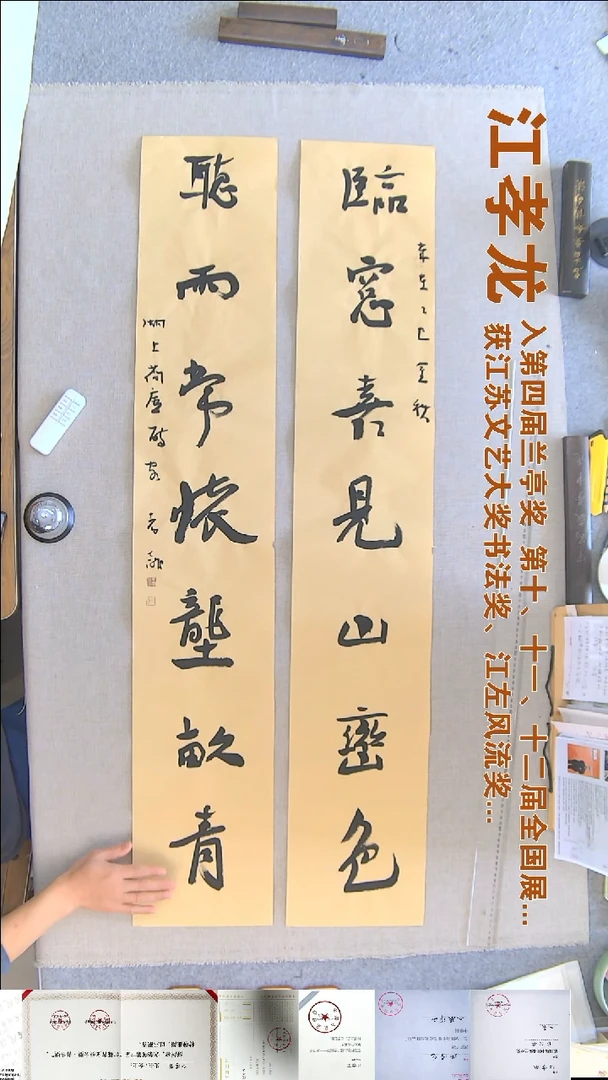 江孝龙
入第四届兰亭奖 第十、十一、十二届全国展...
获江苏文艺大奖书法奖、江左风流奖...
歲在乙巳金秋
臨窓喜見山巒色
聽雨常懷壟畝青